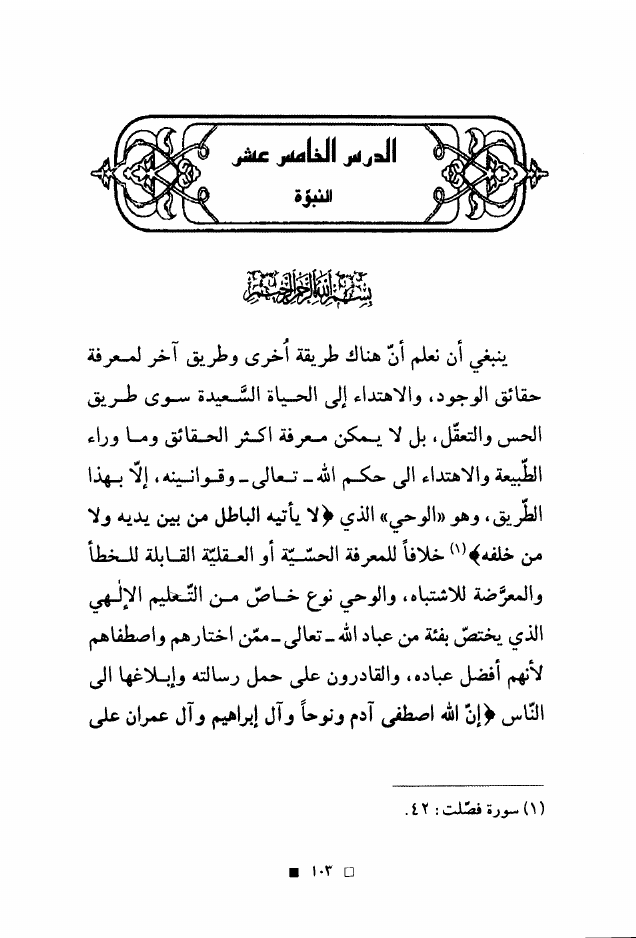 الدرس الخامس عشر
النبوّة
بسم الله الرحمن الرحيم
ينبغي أن نعلم أنّ هناك طريقة أُخرى وطريق آخر لمعرفة
حقائق الوجود، والاهتداء إلى الحياة السَّعيدة سوى طريق
الحس والتعقّل، بل لا يمكن معرفة اكثر الحقائق وما وراء
الطَّبيعة والاهتداء الى حكم الله ـ تعالى ـ وقوانينه، إلّا بهذا
الطَّريق، وهو «الوحي» الذي ﴿لا يأتيه الباطل من بين يديه ولا
من خلفه﴾(١) خلافاً للمعرفة الحسّيّة أو العقليّة القابلة للخطأ
والمعرَّضة للاشتباه، والوحي نوع خاصّ من التّعليم الإلٰهي
الذي يختصّ بفئة من عباد الله ـ تعالى ـ ممّن اختارهم واصطفاهم
لأنهم أفضل عباده، والقادرون على حمل رسالته وإبلاغها الى
النّاس ﴿إنّ الله اصطفى آدم ونوحاً وآل إبراهيم وآل عمران على
(١) سورة فصّلت: ٤٢.
□ ١٠٣ ■